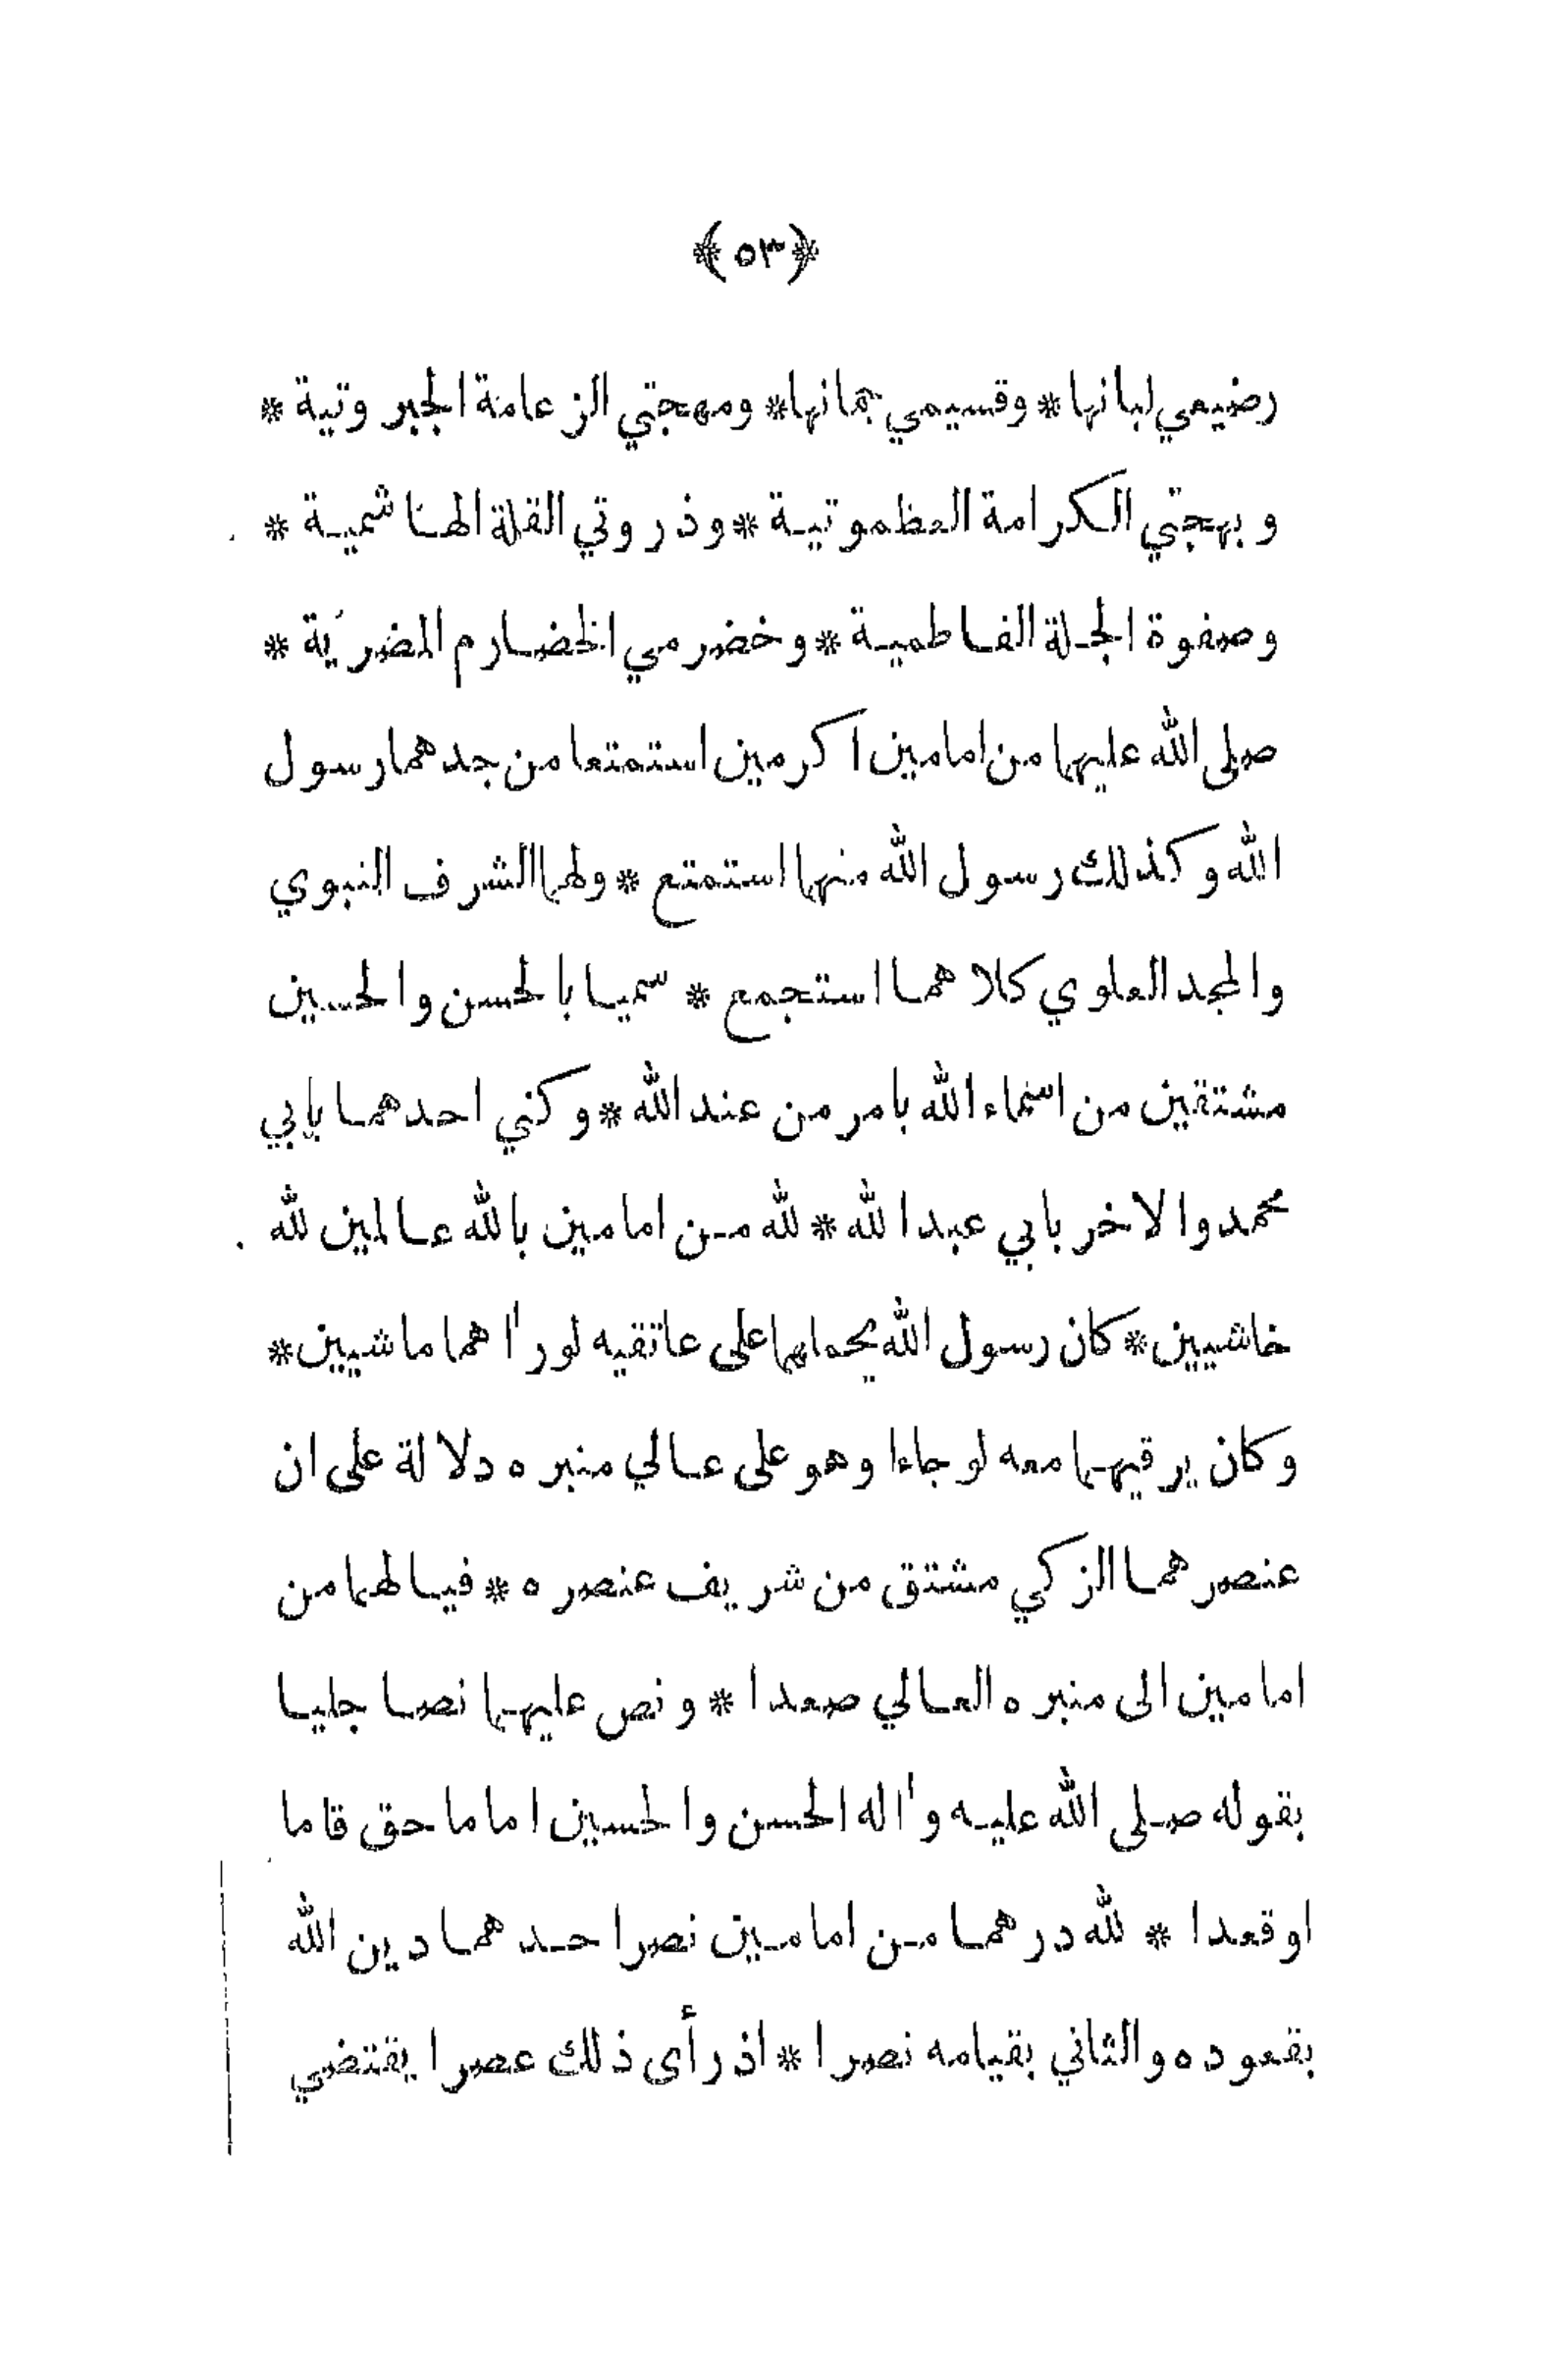 ﴿٥٣﴾
رضيعي لبانها * وقسيمي جمانها * ومهجتي الزعامة الجبروتية *
وبهجتي الكرامة العظموتية * وذروتي القلة الهاشمية *
وصفوة الجلة الفاطمية * وخضرمي الخضارم المضرية *
صلى الله عليهما من امامين اكرمين استمتعا من جدهما رسول
الله وكذلك رسول الله منهما استمتع * ولهما الشرف النبوي
والمجد العلوي كلاهما استجمع * سميا بالحسن والحسين
مشتقين من اسماء الله بامر من عند الله * وكني احدهما بابي
محمد والاخر بابي عبد الله * لله من امامين بالله عالمين لله
خاشيين * كان رسول الله يحملهما على عاتقيه لو رآهما ماشيين *
وكان يرقيهما معه لو جاءا وهو على عالي منبره دلالة على ان
عنصرهما الزكي مشتق من شريف عنصره * فيا لهما من
امامين الى منبره العالي صعدا * ونص عليهما نصا جليا
بقوله صلى الله عليه وآله الحسن والحسين اماما حق قاما
او قعدا * لله درهما من امامين نصر احدهما دين الله
بقعوده والثاني بقيامه نصرا * اذ رأى ذلك عصرا يقتضي